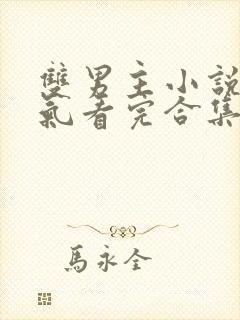 雙男主小說
氣看完合集
馬永全